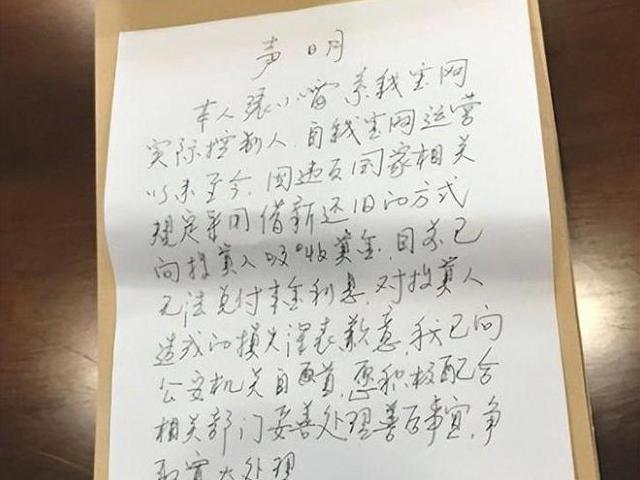 声明
本人张小雷系钱宝网
实际控制人，自钱宝网运营
以来至今，因违反国家相关
规定采用借新还旧的方式
向投资人吸收资金，目前已
无法兑付本金利息，对投资人
造成的损失深表歉意，我已向
公安机关自首，愿积极配合
相关部门妥善处理善后事宜，争
取宽大处理